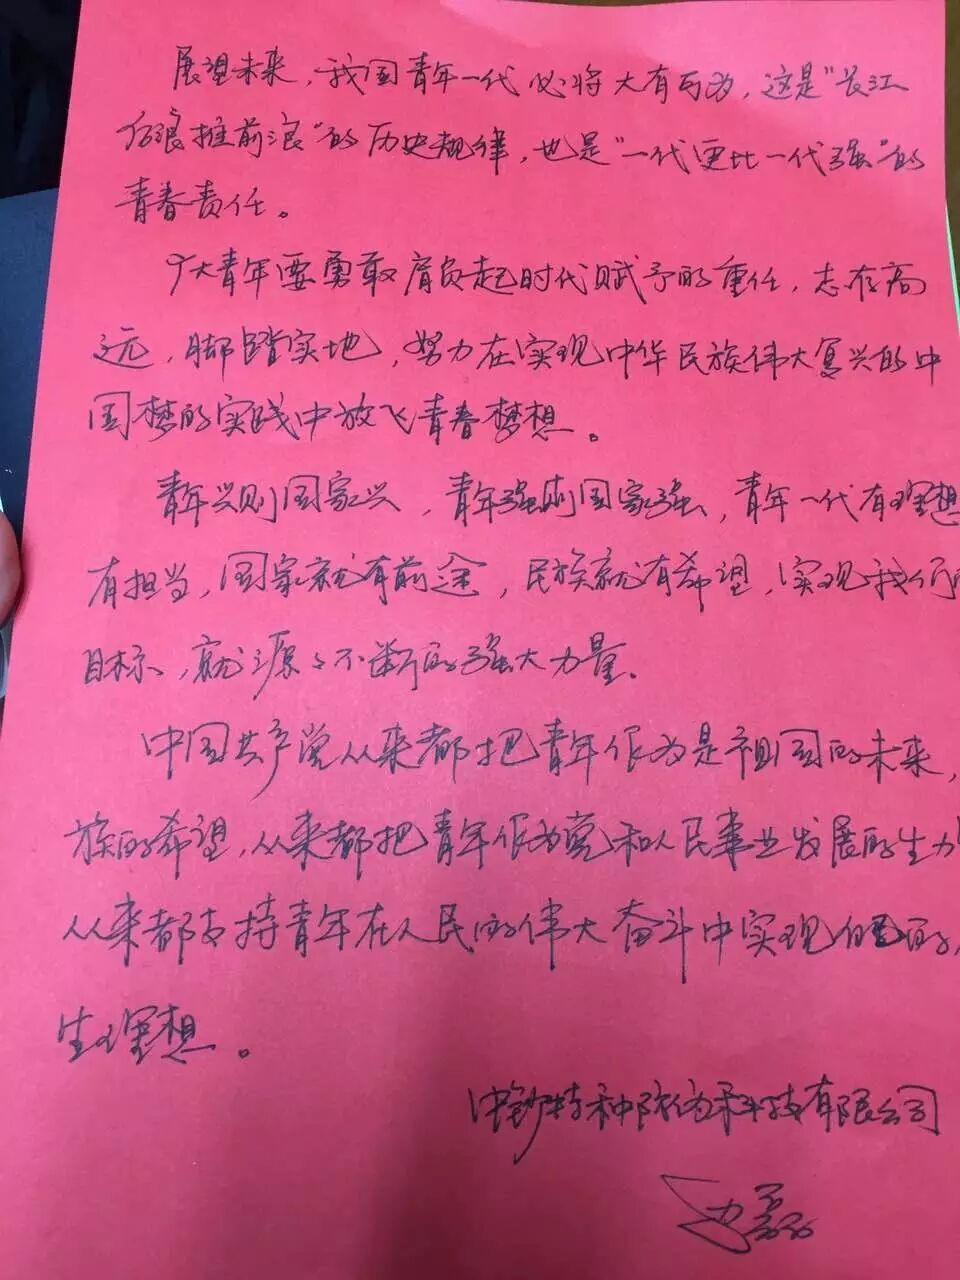 展望未来，我国青年一代必将大有可为，这是“长江
后浪推前浪”的历史规律，也是“一代更比一代强”的
青春责任。
广大青年要勇敢肩负起时代赋予的重任，志存高
远，脚踏实地，努力在实现中华民族伟大复兴的中
国梦的实践中放飞青春梦想。
青年兴则国家兴，青年强则国家强，青年一代有理想
有担当，国家就有前途，民族就有希望，实现我们
目标，就源々不断的强大力量。
中国共产党从来都把青年作为是祖国的未来，
族的希望，从来都把青年作为党和人民事业发展的生力
从来都支持青年在人民的伟大奋斗中实现自己的
生理想。
中钞特种防伪科技有限公司
边磊